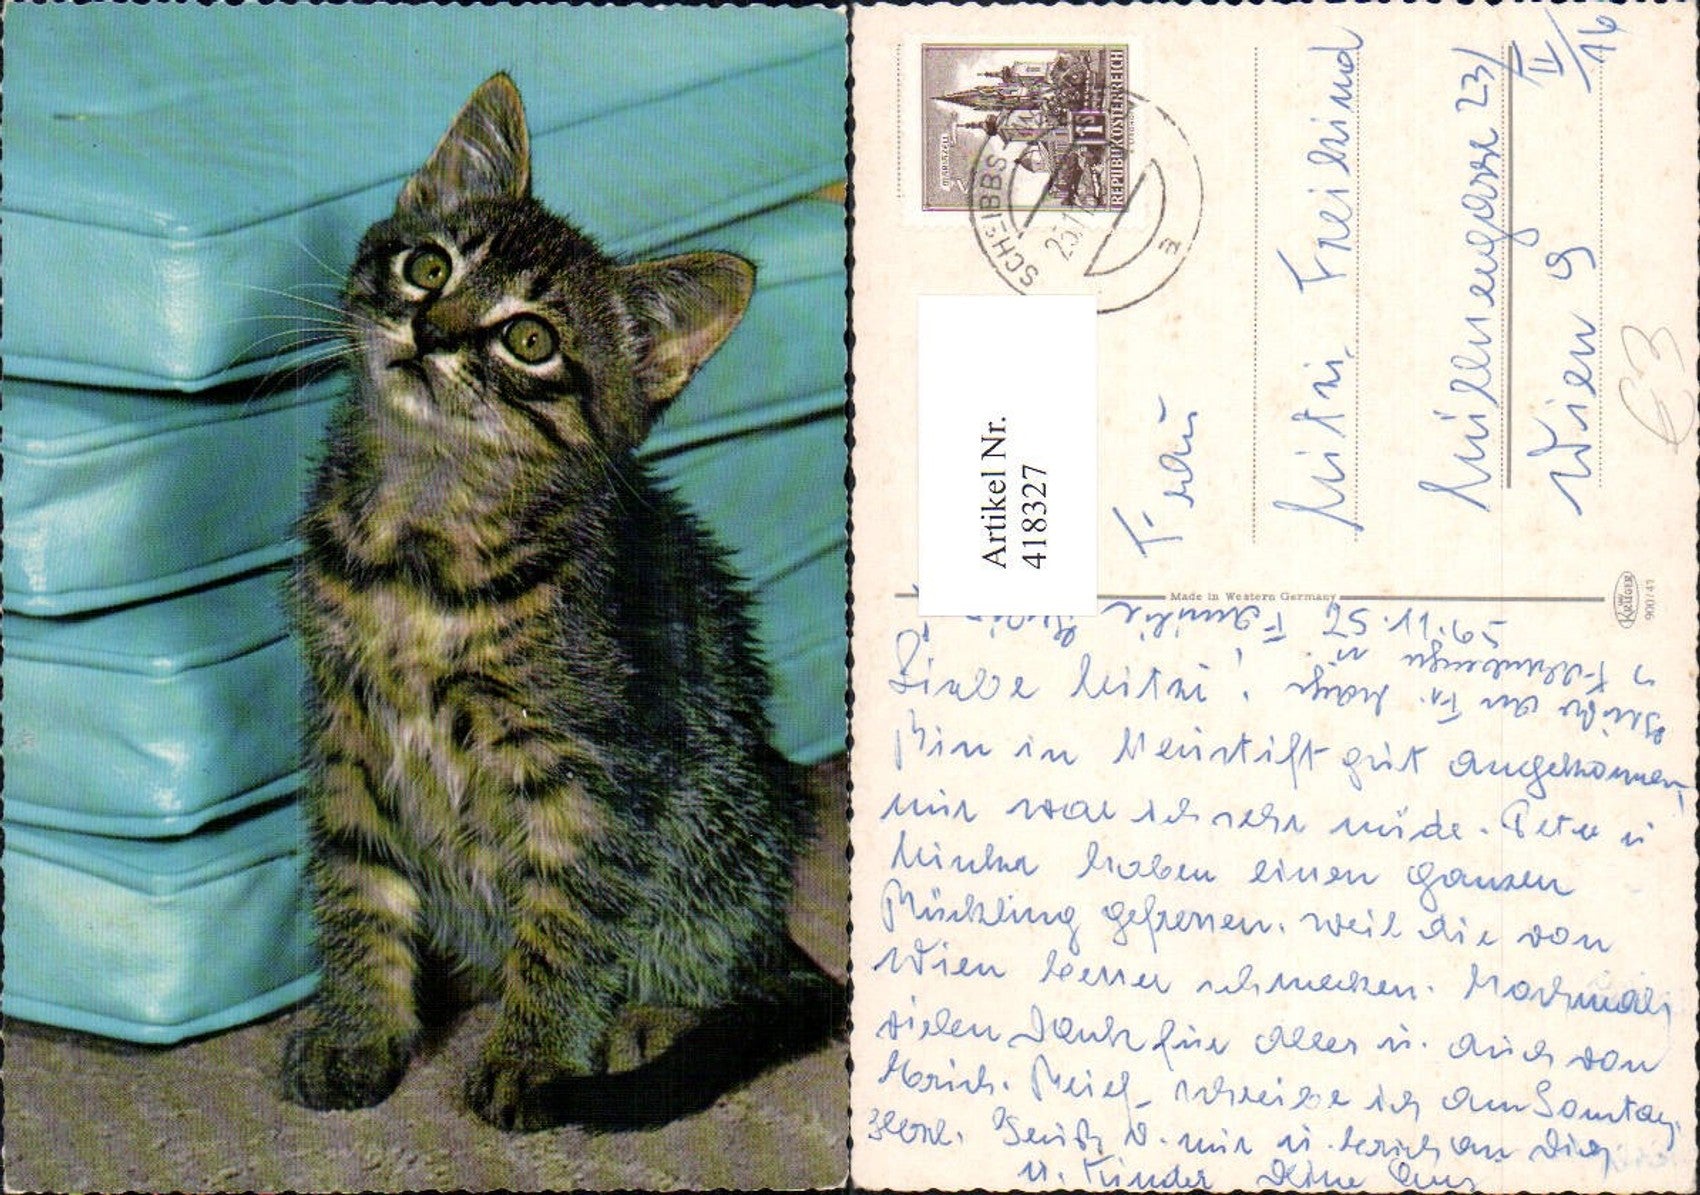 REPUBLIK ÖSTERREICH
MARIAZELL
1
SCHEIBBS
25.11
a
Artikel Nr.
418327
Frau
Mitzi Freilsind
Müllnergasse 23/
II/16
Wien 9
€3
Made in Western Germany
KRÜGER
900/41
Liebe Mitzi!
Bin in Neustift gut angekommen,
mir war ich sehr müde. Peter u
Minka haben einen ganzen
Bückling gefressen. weil die von
Wien besser schmecken. Nochmals
vielen Dank für alles u. auch von
Erich. Brief schreibe ich am Sonntag.
Herzl. Gruß v. mir u. Erich an Dich
u. Kinder Deine
Grüße an Fr.
u. Familie